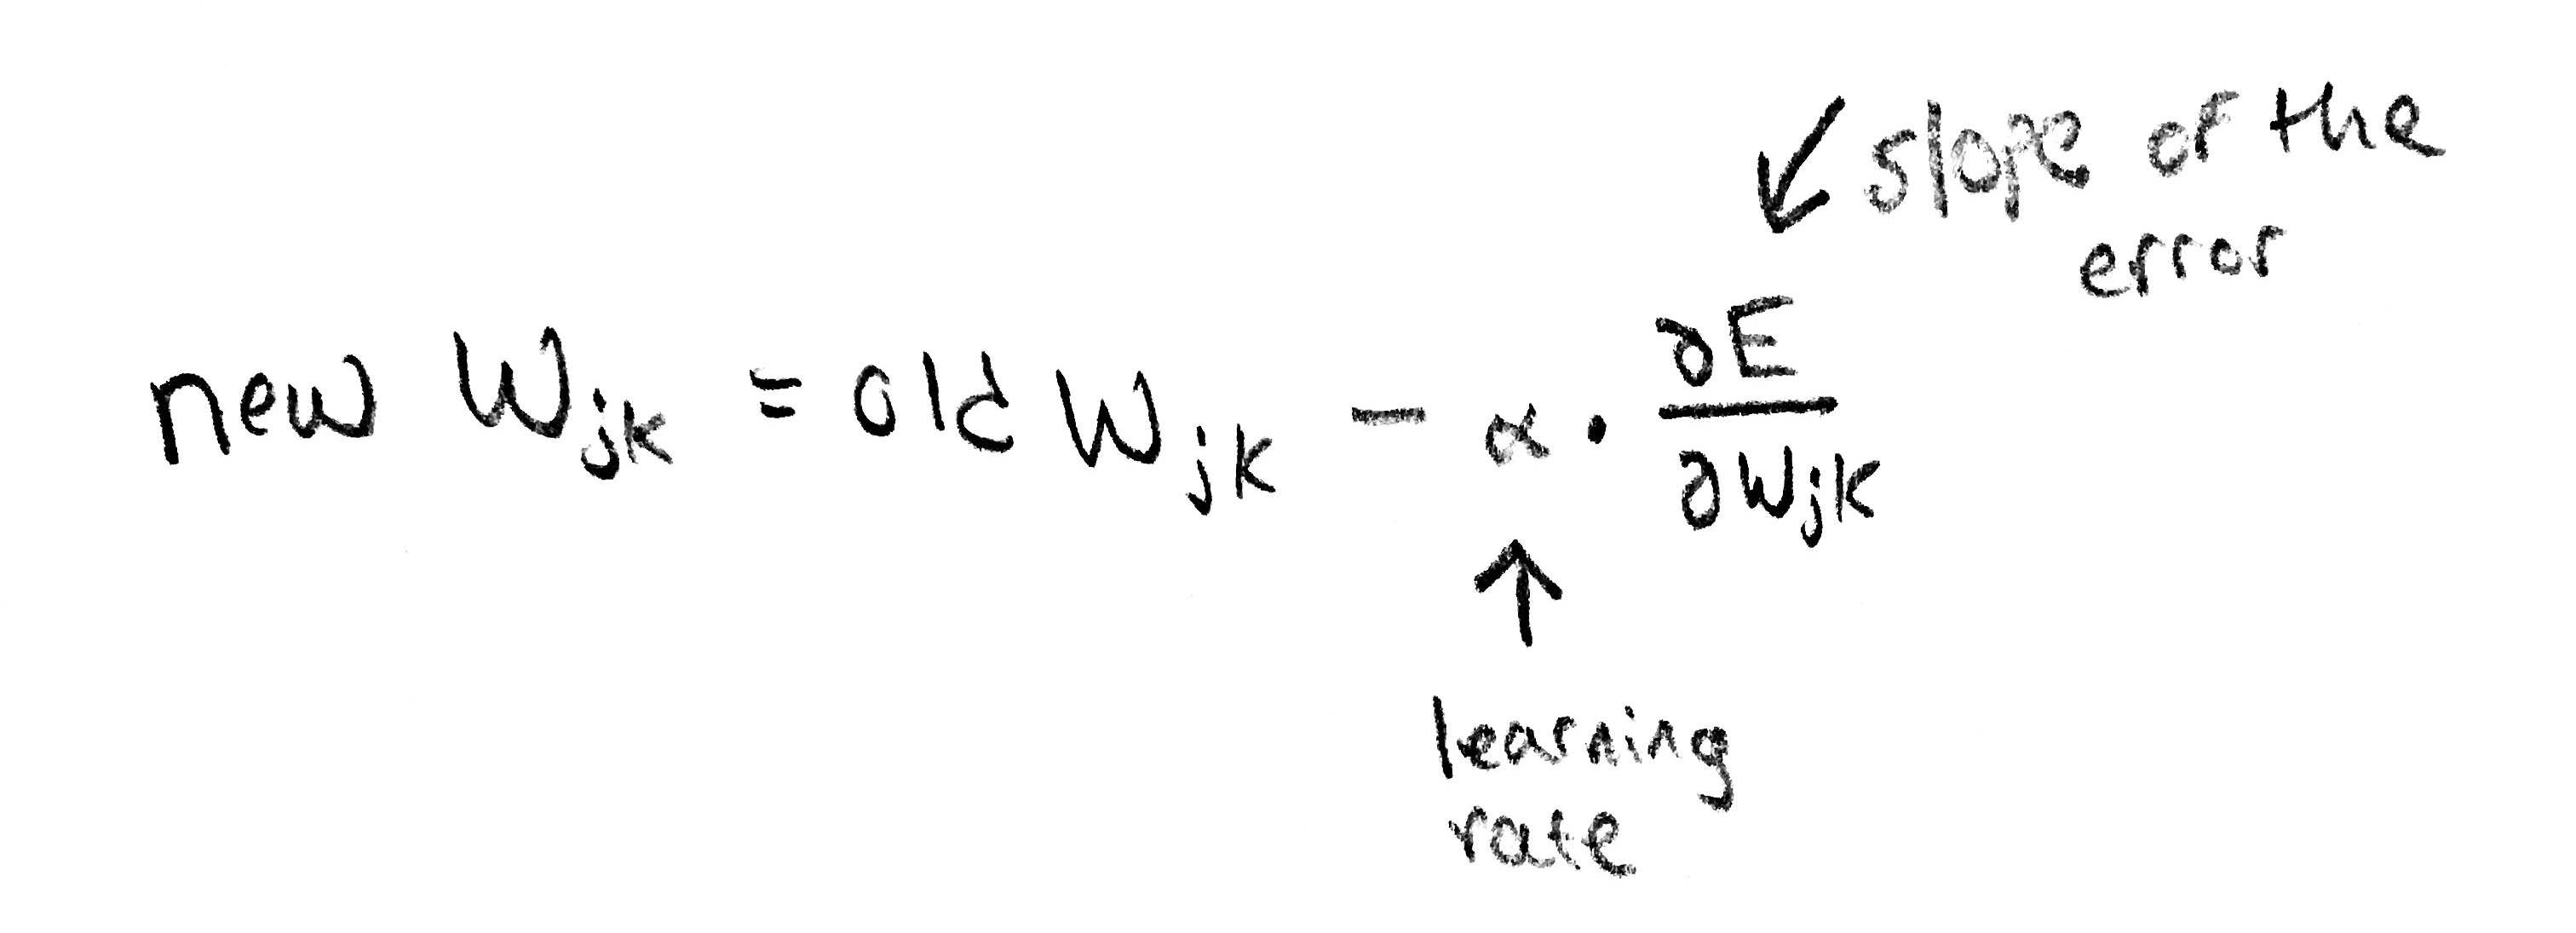 slope of the
error
new Wjk = old Wjk - α · ∂E/∂Wjk
learning
rate